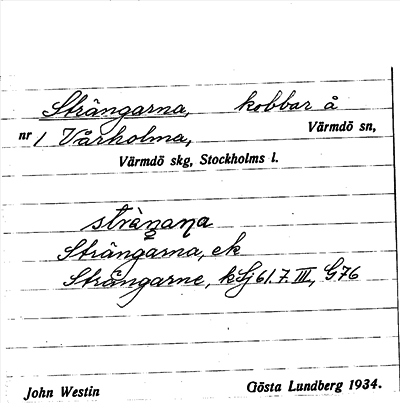 Strängarna, kobbar å
nr 1 Vårholma, Värmdö sn,
Värmdö skg, Stockholms l.
Strängarna, ek
Strängarne, kSj 61.7.III, G76
John Westin Gösta Lundberg 1934.